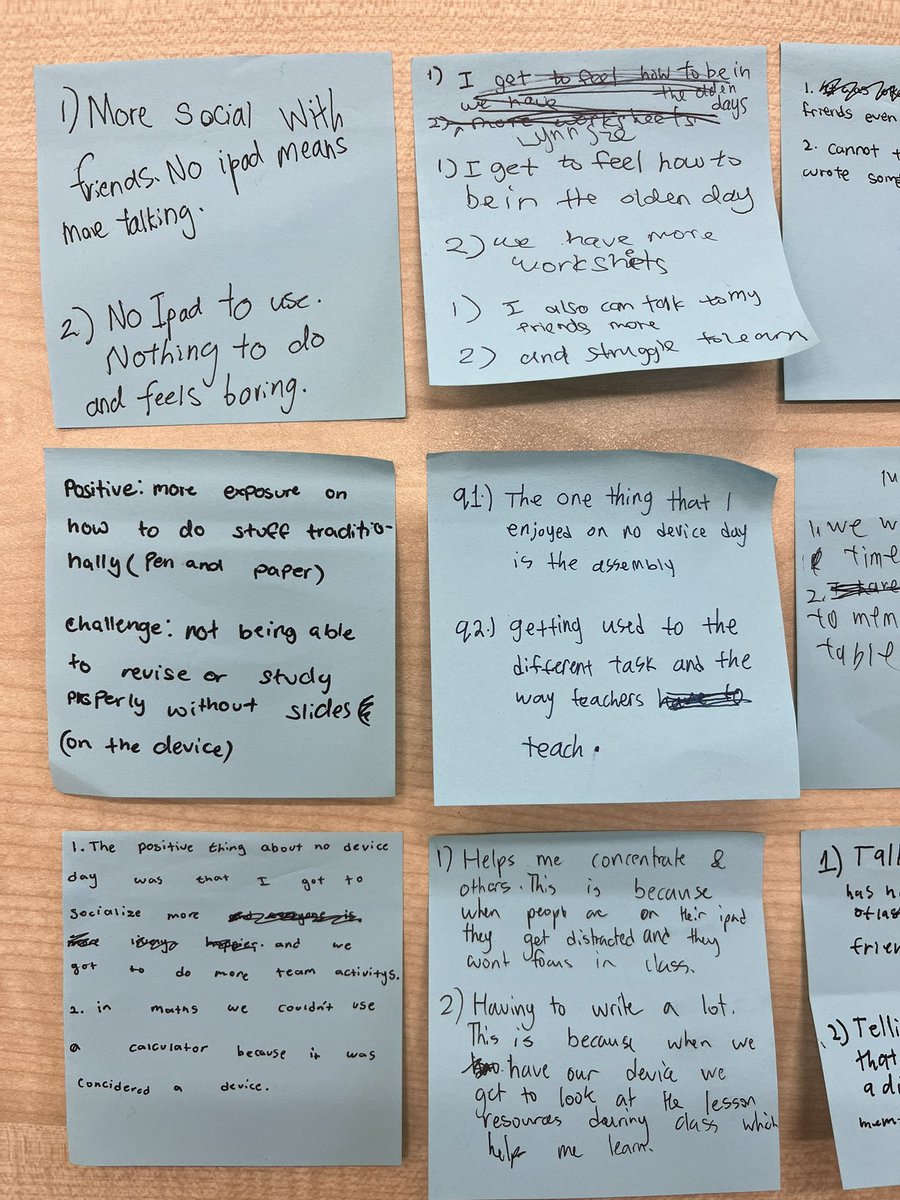 1) More social with
friends. No ipad means
more talking.
2) No Ipad to use.
Nothing to do
and feels boring.
1) I get to feel how to be in
the olden
we have days
2) more worksheets
1) I get to feel how to
be in the olden day
2) we have more
worksheets
1) I also can talk to my
friends more
2) and struggle to learn
1.
friends even
2. cannot t
wrote som
Positive: more exposure on
how to do stuff traditio-
nally (pen and paper)
challenge: not being able
to revise or study
properly without slides
(on the device)
q1.) The one thing that I
enjoyed on no device day
is the assembly
q2.) getting used to the
different task and the
way teachers have to
teach.
1. we w
time
2.
to mem
table
1. The positive thing about no device
day was that I got to
socialize more and everyone is
happier. and we
got to do more team activitys.
2. in maths we couldn't use
a calculator because it was
concidered a device.
1) Helps me concentrate &
others. This is because
when peopl are on their ipad
they get distracted and they
wont focus in class.
2) Having to write a lot.
This is because when we
have our device we
get to look at the lesson
resources during class which
helps me learn.
1) Tal
has
of las
frien
2) Telli
that
a di
mem